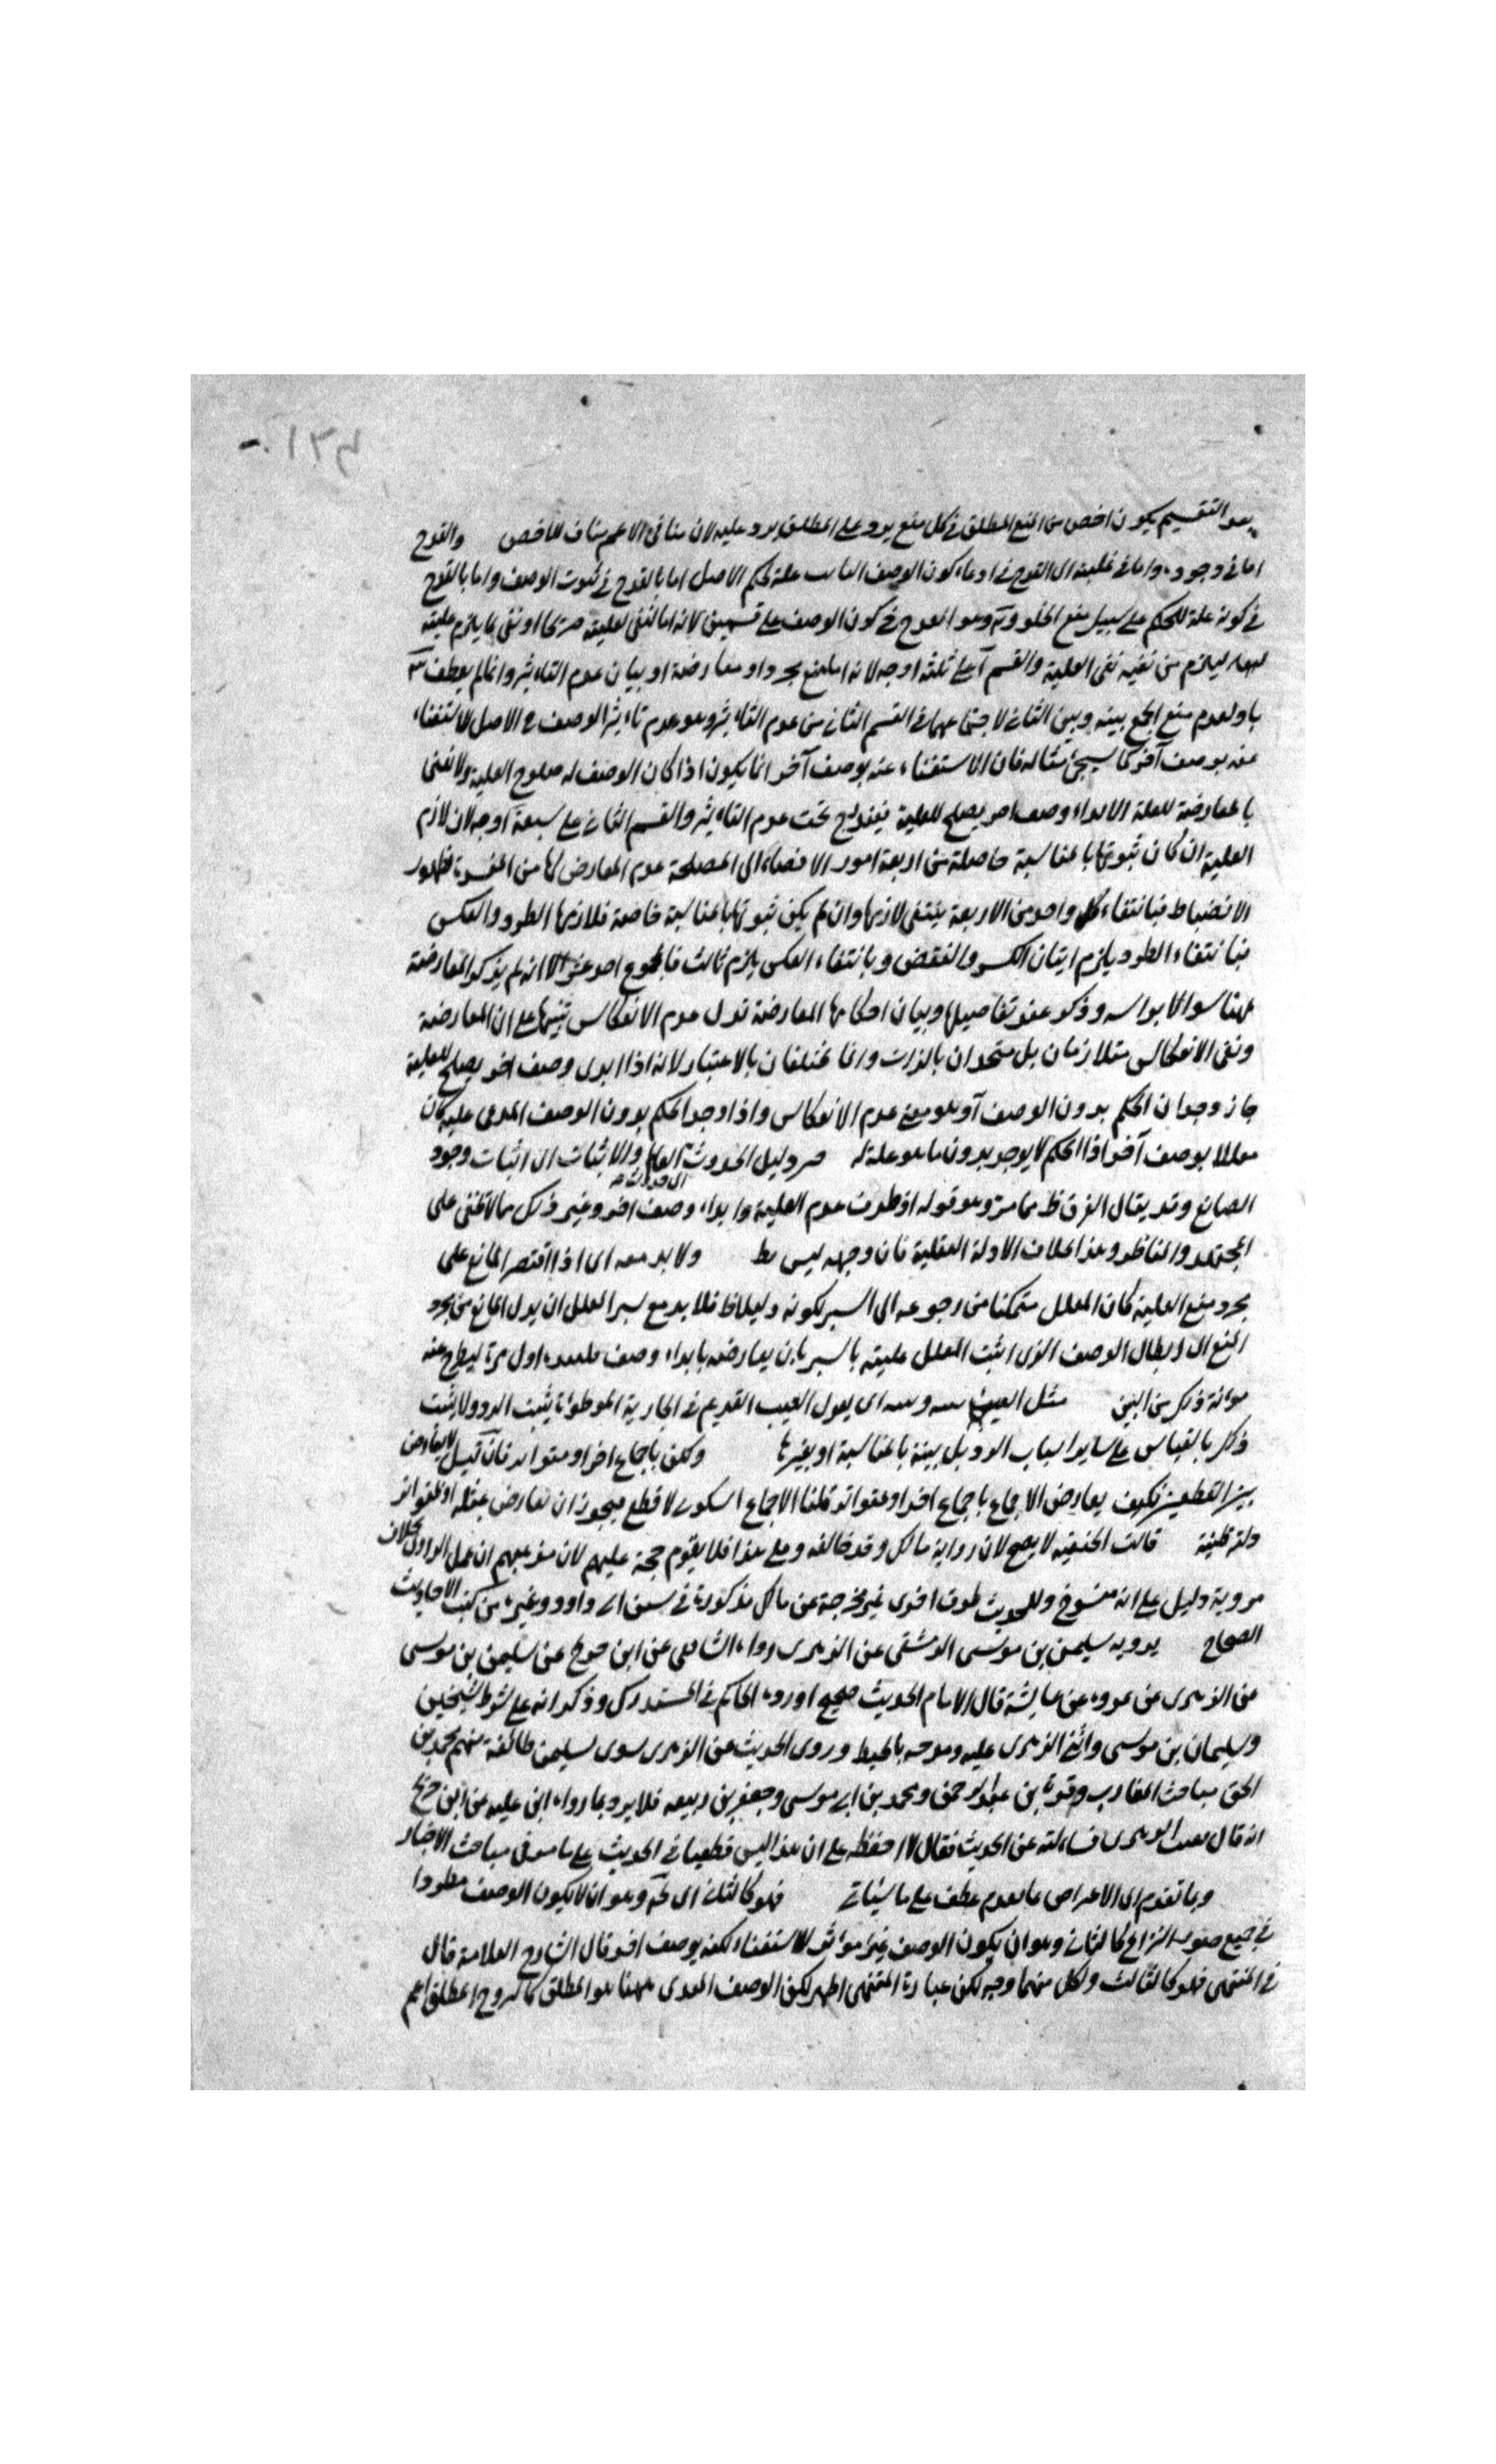 بعد التقسيم يكون اخص من المنع المطلق فكل منع يرد على المطلق يرد عليه لان منافى الاعم مناف للاخص والقدح
اما فى وجوده واما فى عليته اى القدح فى ادعاء كون الوصف علة لحكم الاصل اما بالقدح فى ثبوت الوصف واما بالقدح
فى كونه علة للحكم على سبيل منع الخلو وهو القدح فى كون الوصف على قسمين لانه اما لنفى لعليته صريحا او نفى ما يلزم عليته
ليلزم من نفيه نفى العلية والقسم آ على ثلثة اوجه لانه اما منع مجرد او معارضة او بيان عدم التاثير وانما لم يعطف
باو لعدم منع الجمع بينه وبين الثانى لاجتماعهما فى القسم الثانى من عدم التاثير وهو عدم تاثير الوصف فى الاصل للاستغناء
عنه بوصف آخر كما سيجئ مثاله فان الاستغناء عنه بوصف آخر انما يكون اذا كان الوصف له صلوح العلية ولا نعنى
بالمعارضة للعلة الا ابداء وصف اخر يصلح للعلية فيندرج تحت عدم التاثير والقسم الثانى على سبعة اوجه لان لازم
العلية ان كان ثبوتها بالمناسبة حاصلة من اربعة امور الافضاء الى المصلحة عدم المعارض لها من المفسدة الظهور
الانضباط فبانتفاء كل واحد من الاربعة ينتفى لازمها وان لم يكن ثبوتها بالمناسبة خاصة فلازمها الطرد والعكس
فبانتفاء الطرد يلزم اتيان الكسر والنقض وبانتفاء العكس يلزم ثالث فالمجموع احد عشر الا انه لم يذكر المعارضة
ههنا وذكر عند تفاصيلها وبيان احكامها المعارضة بدل عدم الانعكاس تنبيها على ان المعارضة
ونفى الانعكاس متلازمان بل متحدان بالذات وانما مختلفان بالاعتبار لانه اذا ابدى وصف اخر يصلح للعلية
جاز وجدان الحكم بدون الوصف آ وهو معنى عدم الانعكاس واذا وجد الحكم بدون الوصف المدعى عليه كان
معللا بوصف آخر اذ الحكم لا يوجد بدون ما هو علة له دليل الحدوث والاثبات اى اثبات وجود
الصانع وقد يقال الفرق ظ مما مر وهو قوله اذ طرق عدم العلية وابداء وصف اخر وغير ذلك مما لا تخفى على
المجتهد والمناظر وهذا بخلاف الادلة العقلية فان وجهه ليس ولا بد معه اى اذا اقتصر المانع على
مجرد منع العلية كان المعلل متمكنا من رجوعه الى السبر لكونه دليلا ظ فلا بد مع سبر المعلل ان يدل المانع من مجرد
المنع الى ابطال الوصف الذى اثبت المعلل عليته بالسبر بان يعارضه بابداء وصف اول مرة ليطرح عنه
مؤنة ذلك من البين مثل العيب اى يقول العيب القديم فى الجارية الموطوءة يثبت الرد ولا يثبت
ذلك بالقياس على ساير اسباب الرد بل بينه بالمناسبة او بغيرها ولكن باجماع اخر او متواتر فان قيل لا تعارض
بين القطعيين فكيف يعارض الاجماع باجماع اخر او متواتر قلنا الاجماع السكوتى لا قطع فيجوز ان تعارض بمثله او بمتواتر
دلالته ظنية قالت الحنفية لا يصح لان رواية مالك وقد خالفه وعلى هذا فلا يقوم حجة عليهم لان مذهبهم ان عمل الراوى بخلاف
مرويه دليل على انه منسوخ وللحديث طرق اخرى غير مخرجة عن مالك مذكورة فى سنن ابى داود وغيره من كتب الاحاديث
الصحاح يرويه سليمن بن موسى الدمشقى عن الزهرى رواه الشافعى عن ابن جريج عن سليمن بن موسى
عن الزهرى عن عروة عن عايشة قال الامام الحديث صحيح اورده الحاكم فى المستدرك وذكر انه على شرط الشيخين
وسليمان بن موسى واثنى الزهرى عليه ومدحه بالحفظ وروى الحديث عن الزهرى سوى سليمن طائفة منهم محمد بن
اسحق وقرة بن عبد الرحمن ومحمد بن ابى موسى وجعفر بن ربيعه فلا يرد بما رواه ابن علية من ابن جريج
انه قال الزهرى فسالته عن الحديث فقال لا احفظه على ان هذا ليس قطعيا فى الحديث على ما سبق مباحث الاخبار
وما تقدم اى الاعتراض بما تقدم عطف على ما سياتى فهو كالثانى اى وهو ان لا يكون الوصف مطردا
فى جميع صور النزاع كالثانى وهو ان يكون الوصف غير مؤثر للاستغناء لكنه بوصف اخر قال الشارح العلامة قال
فى المنتهى فهو كالثالث ولكل منهما وجه لكن عبارة المنتهى اظهر لكن الوصف المعدى ههنا هو المطلق كالزوج المطلق اعم